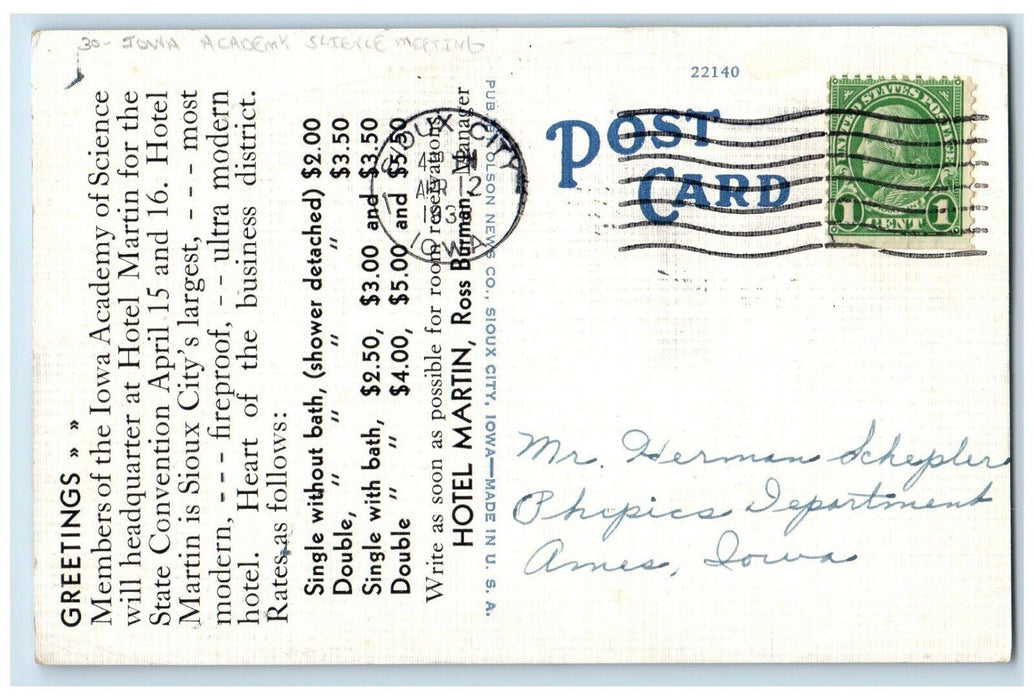 30- IOWA ACADEMY SCIENCE MEETING
GREETINGS » »
Members of the Iowa Academy of Science
will headquarter at Hotel Martin for the
State Convention April 15 and 16. Hotel
Martin is Sioux City's largest, - - - most
modern, - - - fireproof, - - ultra modern
hotel. Heart of the business district.
Rates as follows:
Single without bath, (shower detached) $2.00
Double, " " " " $3.50
Single with bath, $2.50, $3.00 and $3.50
Double " " $4.00, $5.00 and $5.50
Write as soon as possible for room reservations
HOTEL MARTIN, Ross Burman, Manager
PUB. OLSON NEWS CO., SIOUX CITY, IOWA—MADE IN U. S. A.
22140
POST
CARD
SIOUX CITY
APR 12
193
IOWA
UNITED STATES POSTAGE
1 CENT 1
Mr. Herman Schepler
Phipics Department
Ames, Iowa